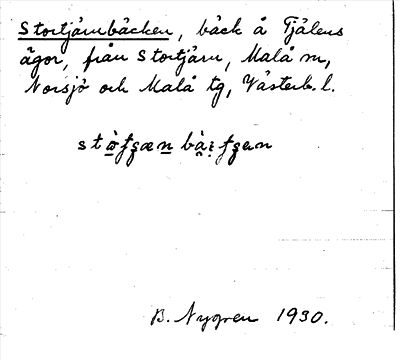 Stortjärnbäcken, bäck å Tjålens
ägor, från Stortjärn, Malå sn,
Norsjö och Malå tg, Västerb. l.
B. Nygren 1930.